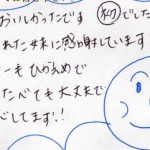 おいしかったです 初でした
れた妹に感謝しています
ーもひかえめで
たべても大丈夫で
べしてます!!